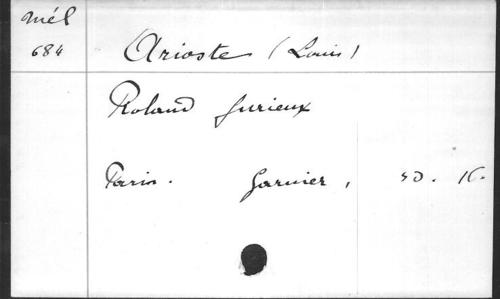 Mél
684
Arioste (Louis)
Roland furieux
Paris. Garnier, SD. 16.